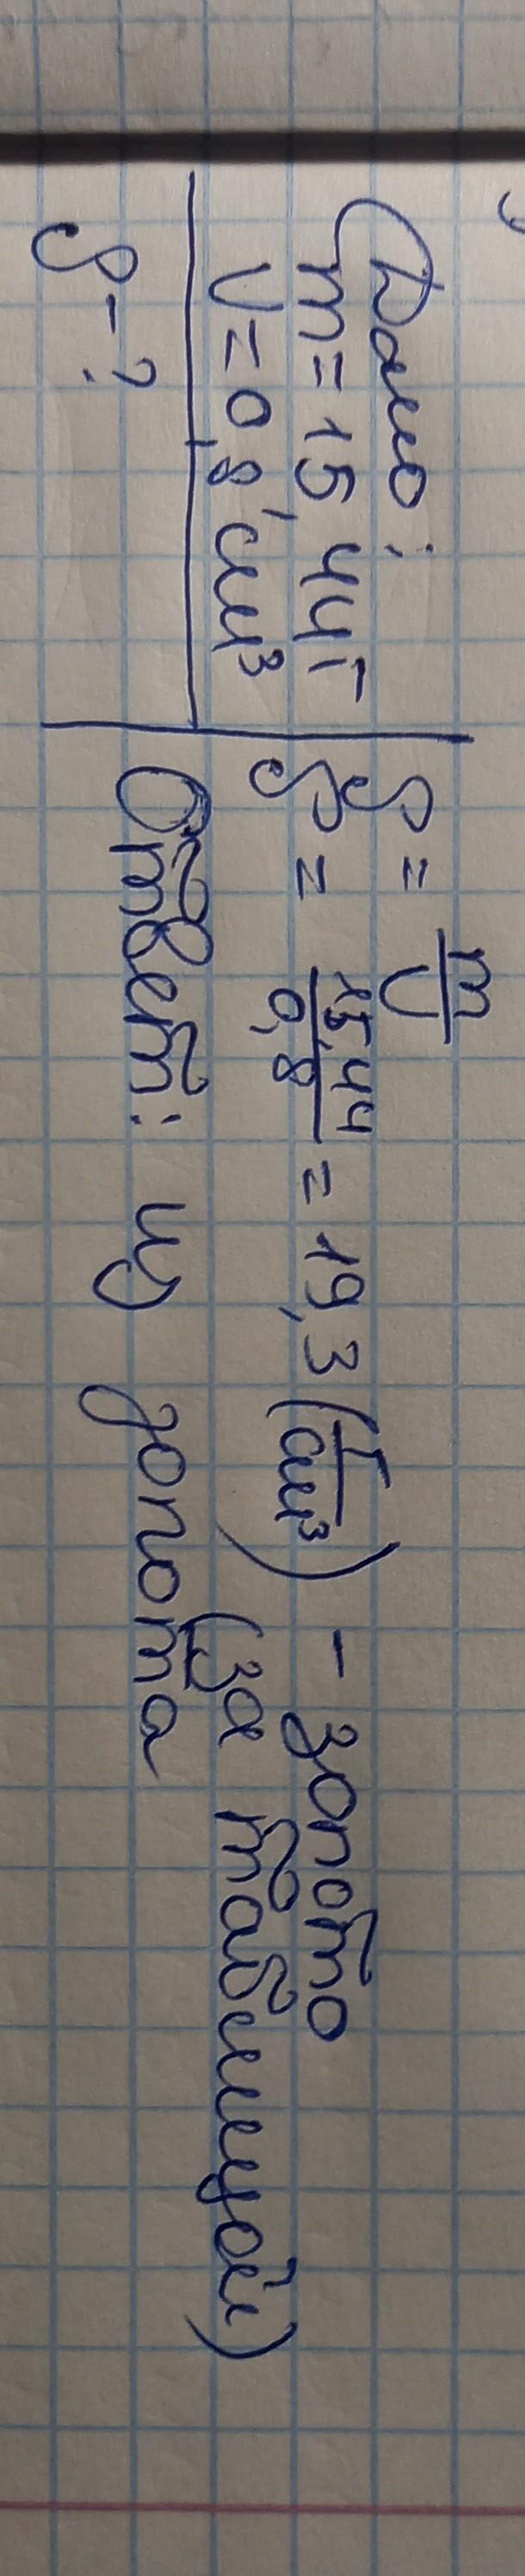 Дано:
m = 15,44 г
V = 0,8 см³
ρ - ?
ρ = m/V
ρ = 15,44/0,8 = 19,3 (г/см³) - золото
(за таблицей)
Ответ: из золота